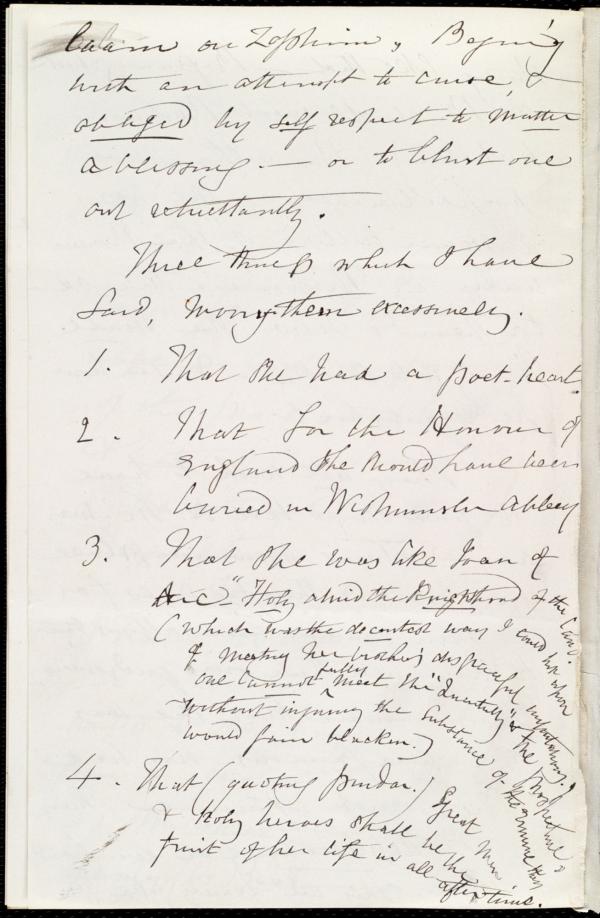 Balaam on Zophim, Begin'g
with an attempt to curse, &
obliged by self respect to mutter
a blessing. — or to blurt one
out reluctantly.
Three things which I have
said, worry them excessively.
1. That she had a poet-heart
2. That for the Honour of
England she should have been
buried in Westminster Abbey
3. That she was like Joan of
Arc — "Holy amid the Knighthood of the Land.
(which was the decentest way I could
of meeting her brother's disgraceful imputations.
one cannot fully meet the "Quarterly" & the
without injuring the substance of the ermine they
would fain blacken.)
4. That (quoting Pindar.) Great Men
& Holy heroes shall be the
fruit of her life in all after-time.